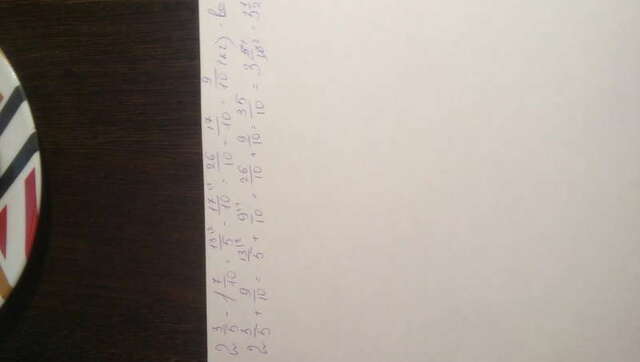 2 3/5 - 1 7/10 = 13/5 - 17/10 = 26/10 - 17/10 = 9/10 (кг) -
2 3/5 + 9/10 = 13/5 + 9/10 = 26/10 + 9/10 = 35/10 = 3 5/10 = 3 1/2